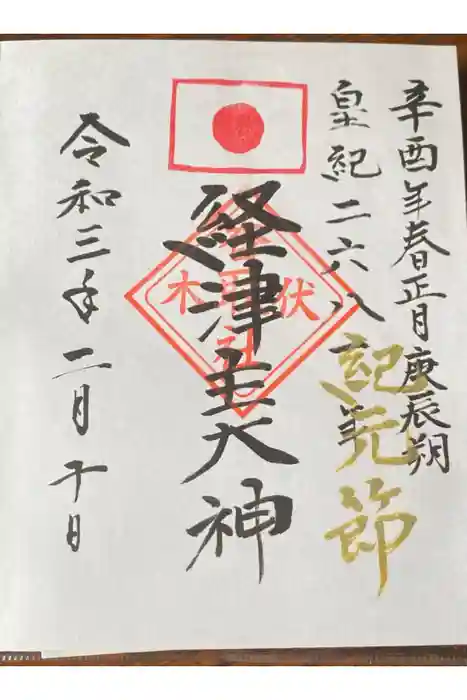 辛酉年春正月庚辰朔
皇紀二六八一年
紀元節
経津主大神
伏木
社
令和三年二月十一日